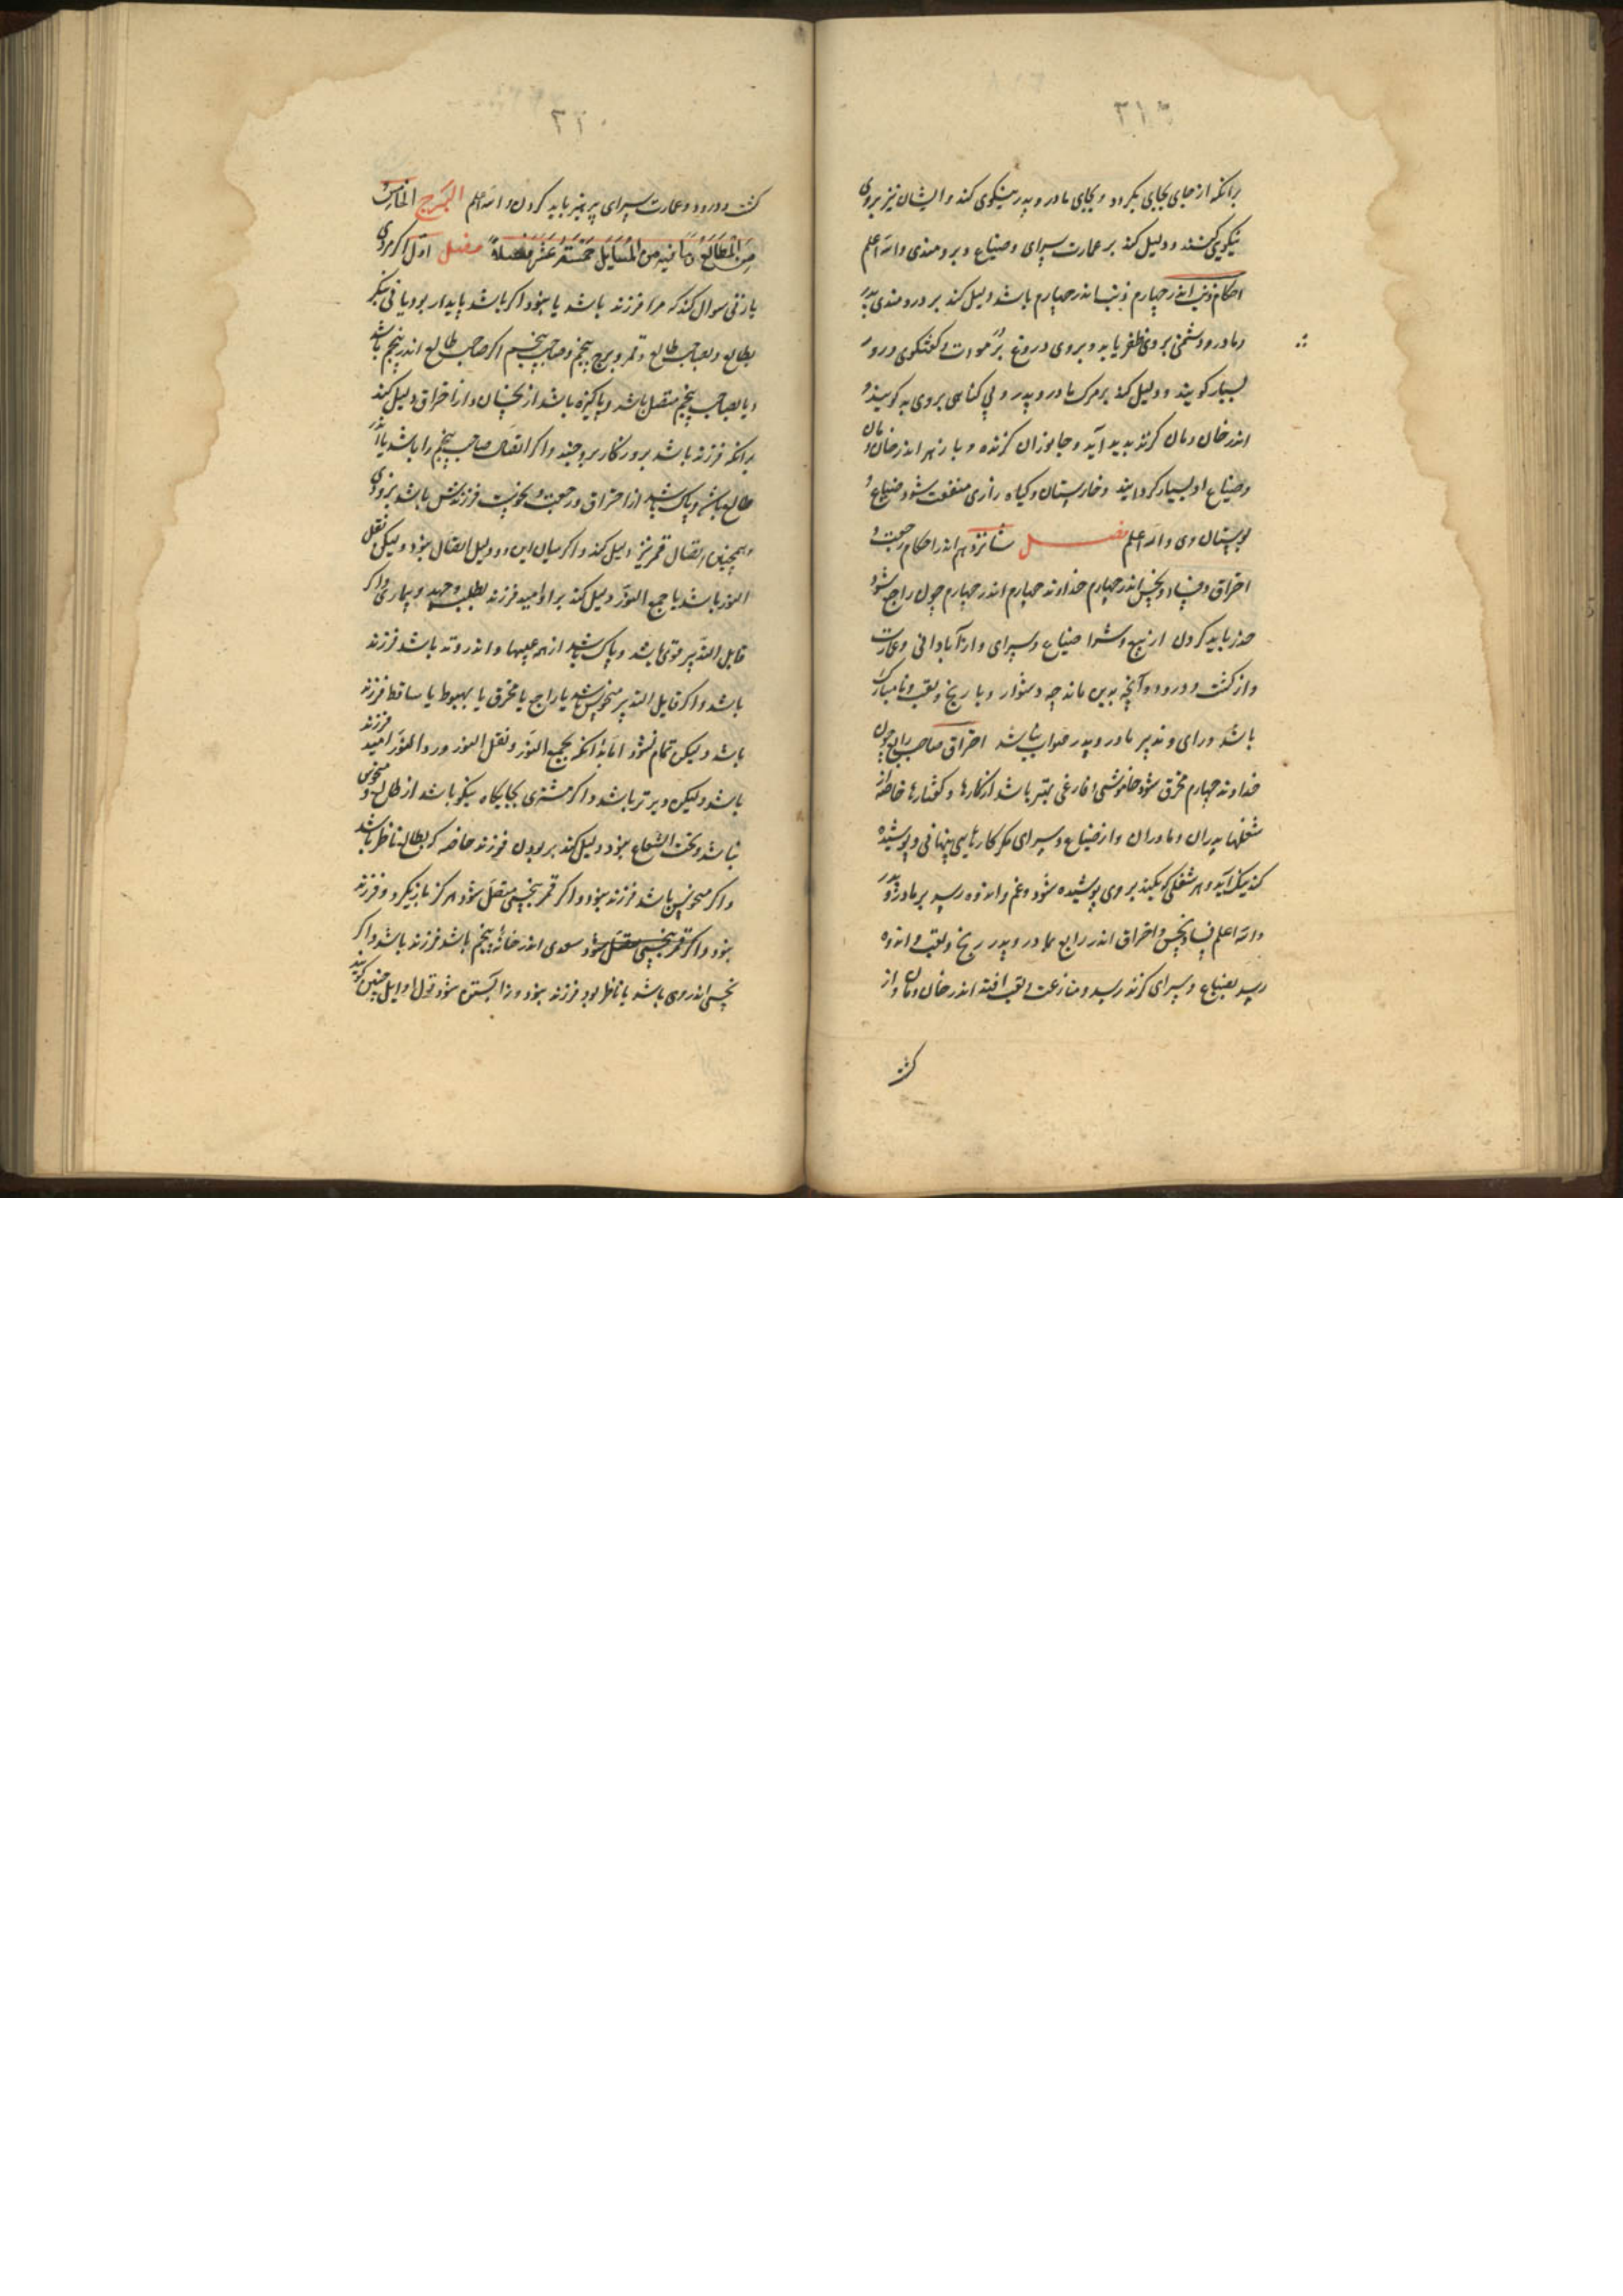 ۳۱۹
برانکه از جای بجای بکردد و بجای مادر و پدر نیکوی کند و ایشان نیز بروی
نیکویی کنند و دلیل کند بر عمارت سرای و ضیاع و برومندی والله اعلم
احکام ذنب اندر چهارم ذنب اندر چهارم باشد دلیل کند بر دردمندی پدر
و مادر و دشمنی بروی ظفر یابد و بروی دروغ و کفتکوی دروغ
بسیار کویند و دلیل کند بر مرک مادر و پدر و بی کناهی بروی بد کویند و
اندر خان و مان کژدم پدید آید و جانوران کزنده و با زهر اندر خان و مان
و ضیاع او بسیار کرد آیند و خارستان و کیاه زاری منفعت شود ضیاع و
بوستان وی والله اعلم فصل شانزدهم اندر احکام رجعت و
احراق و فساد و نحس اندر چهارم خداوند چهارم اندر چهارم چون راجع شود
حذر باید کردن از بیع و شرا ضیاع و سرای و از آبادانی و عمارت
و از کشت و درود و آنچه بدین ماند چه دشوار و با رنج و تعب و نامبارک
باشد و رای و تدبیر مادر و پدر صواب نباشد احراق صاحب رابع چون
خداوند چهارم محرق شود خاموشی و فارغی بهتر باشد از کارها و کفتارها خاصه از
شغلها پدران و مادران و از ضیاع و سرای مکر کارهایی پنهانی و پوشیده
کند نیک آید و هر شغلی که بکند بروی پوشیده شود و غم و اندوه رسد بر مادر و پدر
والله اعلم فساد و نحس و احراق اندر رابع بمادر و پدر رنج و تعب و اندوه
رسد بضیاع و سرای کزند رسد و منازعت و تعب افتد اندر خان و مان و از
کشت
۳۲۰
کشت و درود و عمارت سرای پرهیز باید کردن والله اعلم البرج الخامس
من المطالع و ما فیه من المسایل خمسة عشر فصلاً فصل اول اکر مردی
یا زنی سوال کند که مرا فرزند باشد یا نبود و اکر باشد پایدار بود یا نی بنکر
بطالع و بصاحب طالع و قمر و برج پنجم و صاحب پنجم اکر صاحب طالع اندر پنجم باشد
و یا بصاحب پنجم متصل باشد و پاکیزه باشد از نحسان و از احراق دلیل کند
برانکه فرزند باشد بروزکار بروچند و اکر اتصال صاحب پنجم را باشد یا اندر
طالع باشد و پاک باشد از احتراق و رجعت و نحوست فرزندش باشد بزودی
و همچنین اتصال قمر نیز دلیل کند و اکر میان این دو دلیل اتصال نبود ولیکن نقل
النور باشد یا جمع النور دلیل کند بر اومید فرزند بطلب و جهد و بیماری و اکر
قابل التدبیر قوی باشد و پاک باشد از همه عیبها و اندر وتد باشد فرزند
باشد و اکر قابل التدبیر منحوس باشد یا راجع یا محرق یا بهبوط یا ساقط فرزند
باشد ولیکن تمام نشود اما بدانکه بجمع النور و نقل النور و رد النور امید فرزند
باشد ولیکن دیرتر باشد و اکر مشتری بجایکاه نیکو باشد از طالع و منحوس
نباشد و تحت الشعاع نبود دلیل کند بر بودن فرزند خاصه که بطالع ناظر باشد
و اکر منحوس باشد فرزند نبود و اکر قمر بنحسی متصل شود هرکز باز نکیرد و فرزند
نبود و اکر قمر بنحسی متصل شود سعدی اندر خانهٔ پنجم باشد فرزند باشد و اکر
نحسی اندر وی باشد یا ناظر بود فرزند نبود و زن آبستن نشود قول اوایل چنین کویند